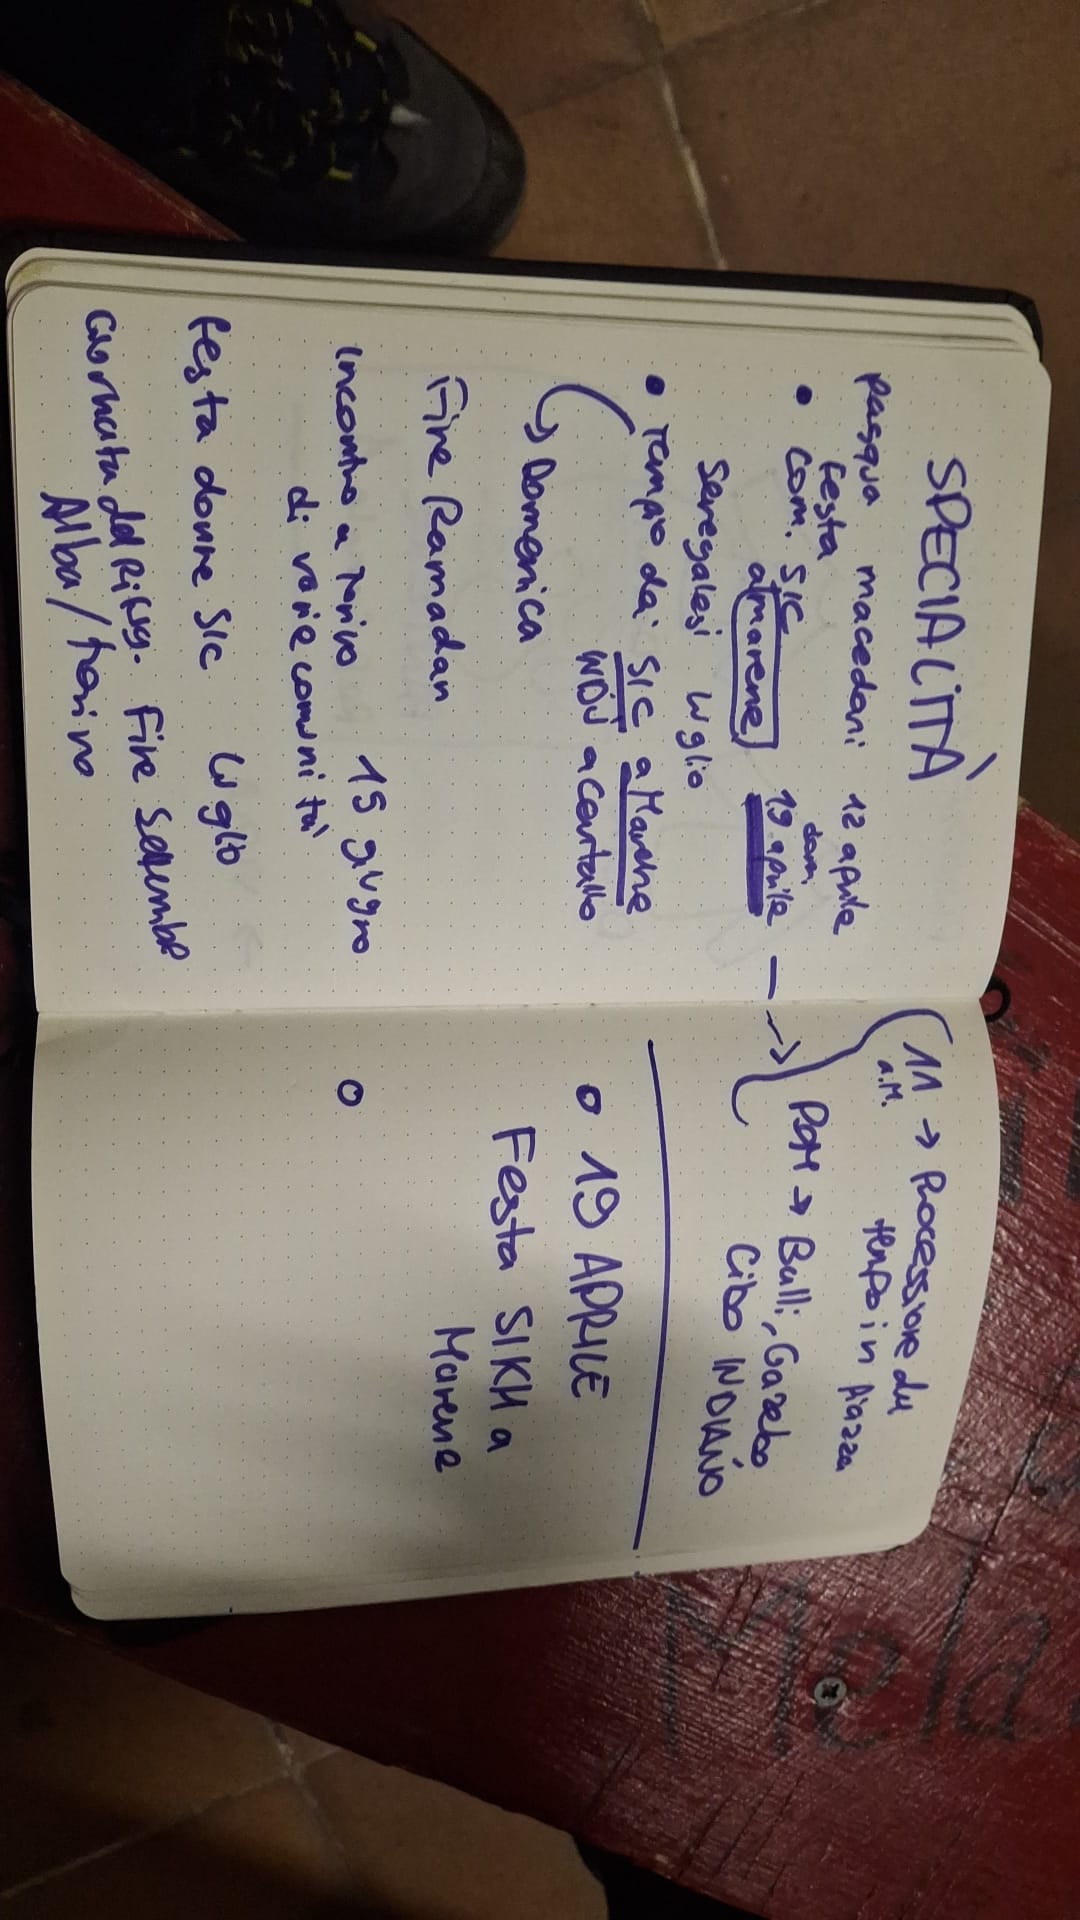 SPECIALITÀ
Pasqua macedoni 12 aprile
Festa dom.
• Com. SIC 19 aprile
a marene
Senegalesi luglio
• Tempio dai SIC a Marene
INDÙ a Centallo
↳ Domenica
Fine Ramadan
Incontro a Torino 15 giugno
di varie comunità
Festa donne SIC luglio
Giornata del Rifug. Fine Settembre
Alba/torino
11 → Processione da
a.M. tempio in Piazza
POM → Balli, Gazebo
Cibo INDIANO
o 19 APRILE
Festa SIKH a
Marene
o
Mela